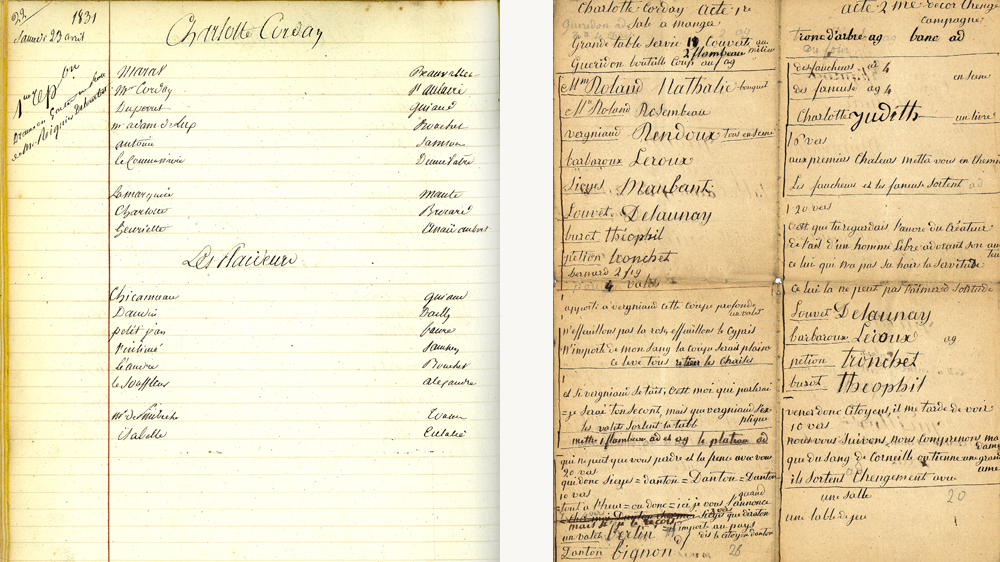 22
1831
Samedi 23 avril
Charlotte Corday
1ère repon
Marat Beauvallet
Mr Corday St aulaire
Duperret Guiaud
mr adam de Lux Bouchet
antoine Samson
le Commissaire
La marquise Mante
Charlotte Brocard
henriette Anaïs aubert
Les Plaideurs
Chicanneau guiaud
Dandin Bailly
petit jean faure
l'intimé Samson
Léandre Bouchet
le Souffleur alexandre
isabelle Eulalie
Charlotte Corday acte 1re
Sale a manger
Grande table servie 11 Couverts au
2 flambeau milieu
Gueridon bouteille Coup au ag
Mme Roland Nathalie bouquet
Mr Roland Rosambeau
vergniaud Rendoux tous en scene
barbaroux Leroux
Sieyes Maubant
Louvet Delaunay
buzot théophil
petion tronchet
bernard 2 f 19
4 valets
apporté a vergniaud cette Coup profonde
un valet
n'effeuillons pas la rose, effeuillons le Cyprès
N'import de mon sang la Coupe serait pleine
ce levé tous retirer les Chaises
et si vergniaud se tait, C'est moi qui parlerai
= je serai ton second, mais que vergniaud s'ex
plique
les valets sortent la table
mettre 1 flambeau ad et ag le plateau ad
qui ne peut que vous perdre et la france avec vous
20 vers
qui donc sieyes = danton = Danton = Danton
10 vers
quand
= tout a l'heure = ou donc = ici je vous l'annonce
un valet berlin n'importe au pays
dit le citoyen danton
Danton bignon 26
acte 2me decor Change
campagne
tronc d'arbre ag banc ad
des faucheurs ad 4
en scene
des faneuse ag 4
Charlotte judith un livre
16 vers
aux premieres Chaleurs mettez vous en Chemin
Les faucheurs et les faneuses sortent ad
20 vers
c'est que tu regardais l'œuvre du Créateur
de l'œil d'un homme Libre adorant son au
teur
ce lui qui n'a pas su hair la servitude
ce lui la ne peut pas t'aimer ô solitude
Louvet Delaunay
barbaroux Leroux ag
petion tronchet
buzot théophil
venez donc Citoyens, il me tarde de voir
10 vers
nous vous suivons, nous Comprenons ma
dame
que du sang de Corneille on tienne une grande
ame
ils sortent Chengement avue
une salle 20
une table de jeu